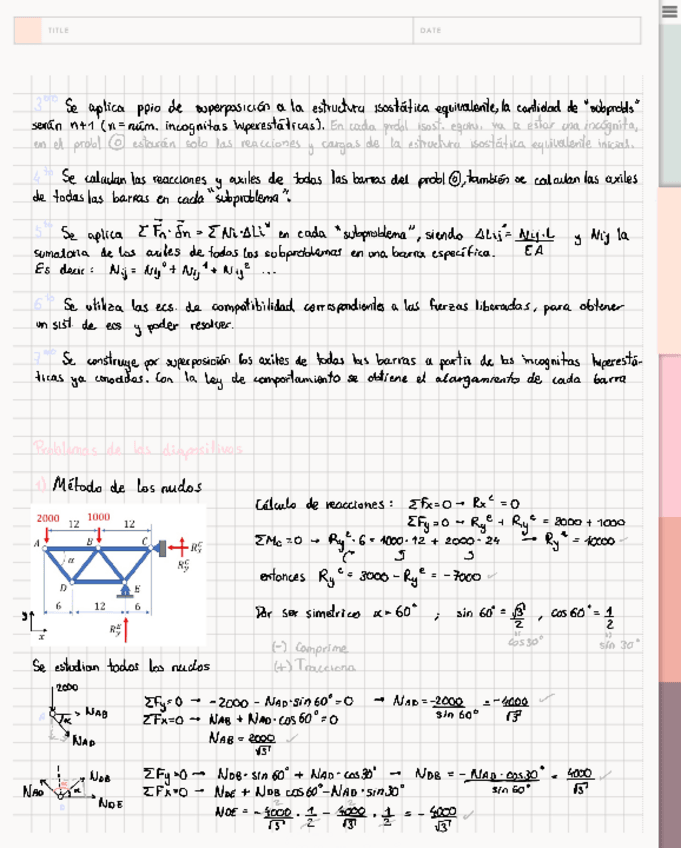 TITLE
DATE
3ero Se aplica ppio de superposición a la estructura isostática equivalente, la cantidad de "subprobls"
serán n+1 (n = núm. incognitas hiperestáticas). En cada probl isost. equiv. va a estar una incógnita,
en el probl ⓪ estarán solo las reacciones y cargas de la estructura isostática equivalente inicial.
4to Se calculan las reacciones y axiles de todas las barras del probl ⓪, también se calculan las axiles
de todas las barras en cada "subproblema".
5to Se aplica Σ Fn · δn = Σ Ni · ΔLi en cada "subproblema", siendo ΔLij = Nij · L / EA y Nij la
sumatoria de los axiles de todos los subproblemas en una barra específica.
Es decir : Nij = Nij⁰ + Nij¹ + Nij² ...
6to Se utiliza las ecs. de compatibilidad correspondientes a las fuerzas liberadas, para obtener
un sist de ecs y poder resolver.
7mo Se construye por superposición los axiles de todas las barras a partir de las incognitas hiperestá-
ticas ya conocidas. Con la ley de comportamiento se obtiene el alargamiento de cada barra
Problemas de las diapositivas
1) Método de los nudos
2000 12 1000 12
A B C
α
D E
6 12 6
y x
Cálculo de reacciones : ΣFx=0 → Rxᶜ = 0
ΣFy=0 → Ryᴱ + Ryᶜ = 2000 + 1000
ΣMc=0 → Ryᴱ · 6 = 1000 · 12 + 2000 · 24 → Ryᴱ = 10000
entonces Ryᶜ = 3000 - Ryᴱ = -7000
Por ser simetrico α = 60° ; sin 60° = √3/2 , cos 60° = 1/2
cos 30° sin 30°
(-) Comprime
(+) Tracciona
Se estudian todos los nudos
2000
NAB
NAD
ΣFy=0 → -2000 - NAD · sin 60° = 0 → NAD = -2000 / sin 60° = -4000/√3
ΣFx=0 → NAB + NAD · cos 60° = 0
NAB = 2000/√3
NAD NDB
NDE
ΣFy=0 → NDB · sin 60° + NAD · cos 30° → NDB = - NAD · cos 30° / sin 60° = 4000/√3
ΣFx=0 → NDE + NDB cos 60° - NAD · sin 30°
NDE = - 4000/√3 · 1/2 - 4000/√3 · 1/2 = - 4000/√3